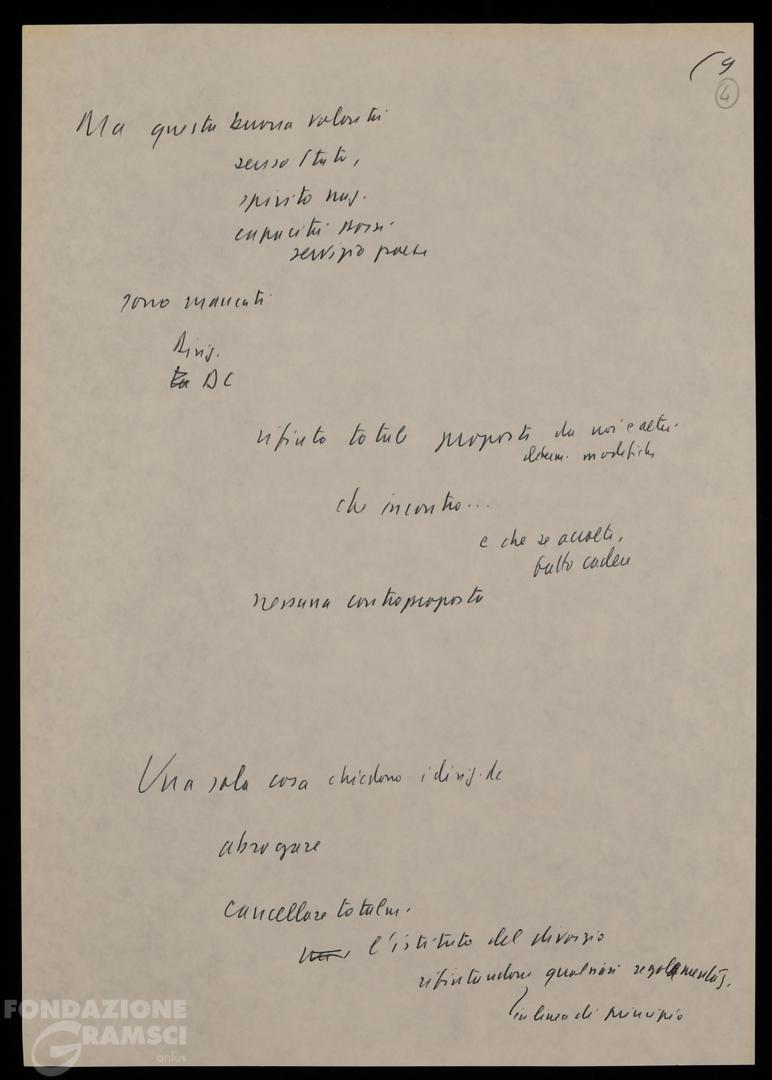 (9
4
Ma questa buona volontà
senso Stato,
spirito naz.
capacità
servizio paese
sono mancati
Dirig.
La DC
rifiuto totale proposte da noi e altri
determ. modifiche
che incontro...
e che se accolte,
fatto cadere
nessuna controproposta
Una sola cosa chiedono i dirig. dc
abrogare
cancellare totalm.
l'istituto del divorzio
rifiutandone qualsiasi regolamentaz.
in linea di principio
FONDAZIONE
GRAMSCI
onlus